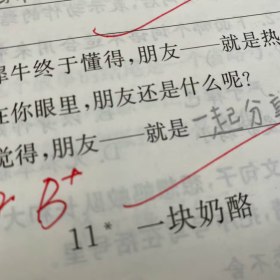 犀牛终于懂得，朋友——就是热
在你眼里，朋友还是什么呢？
觉得，朋友——就是 一起分享
B+
11* 一块奶酪